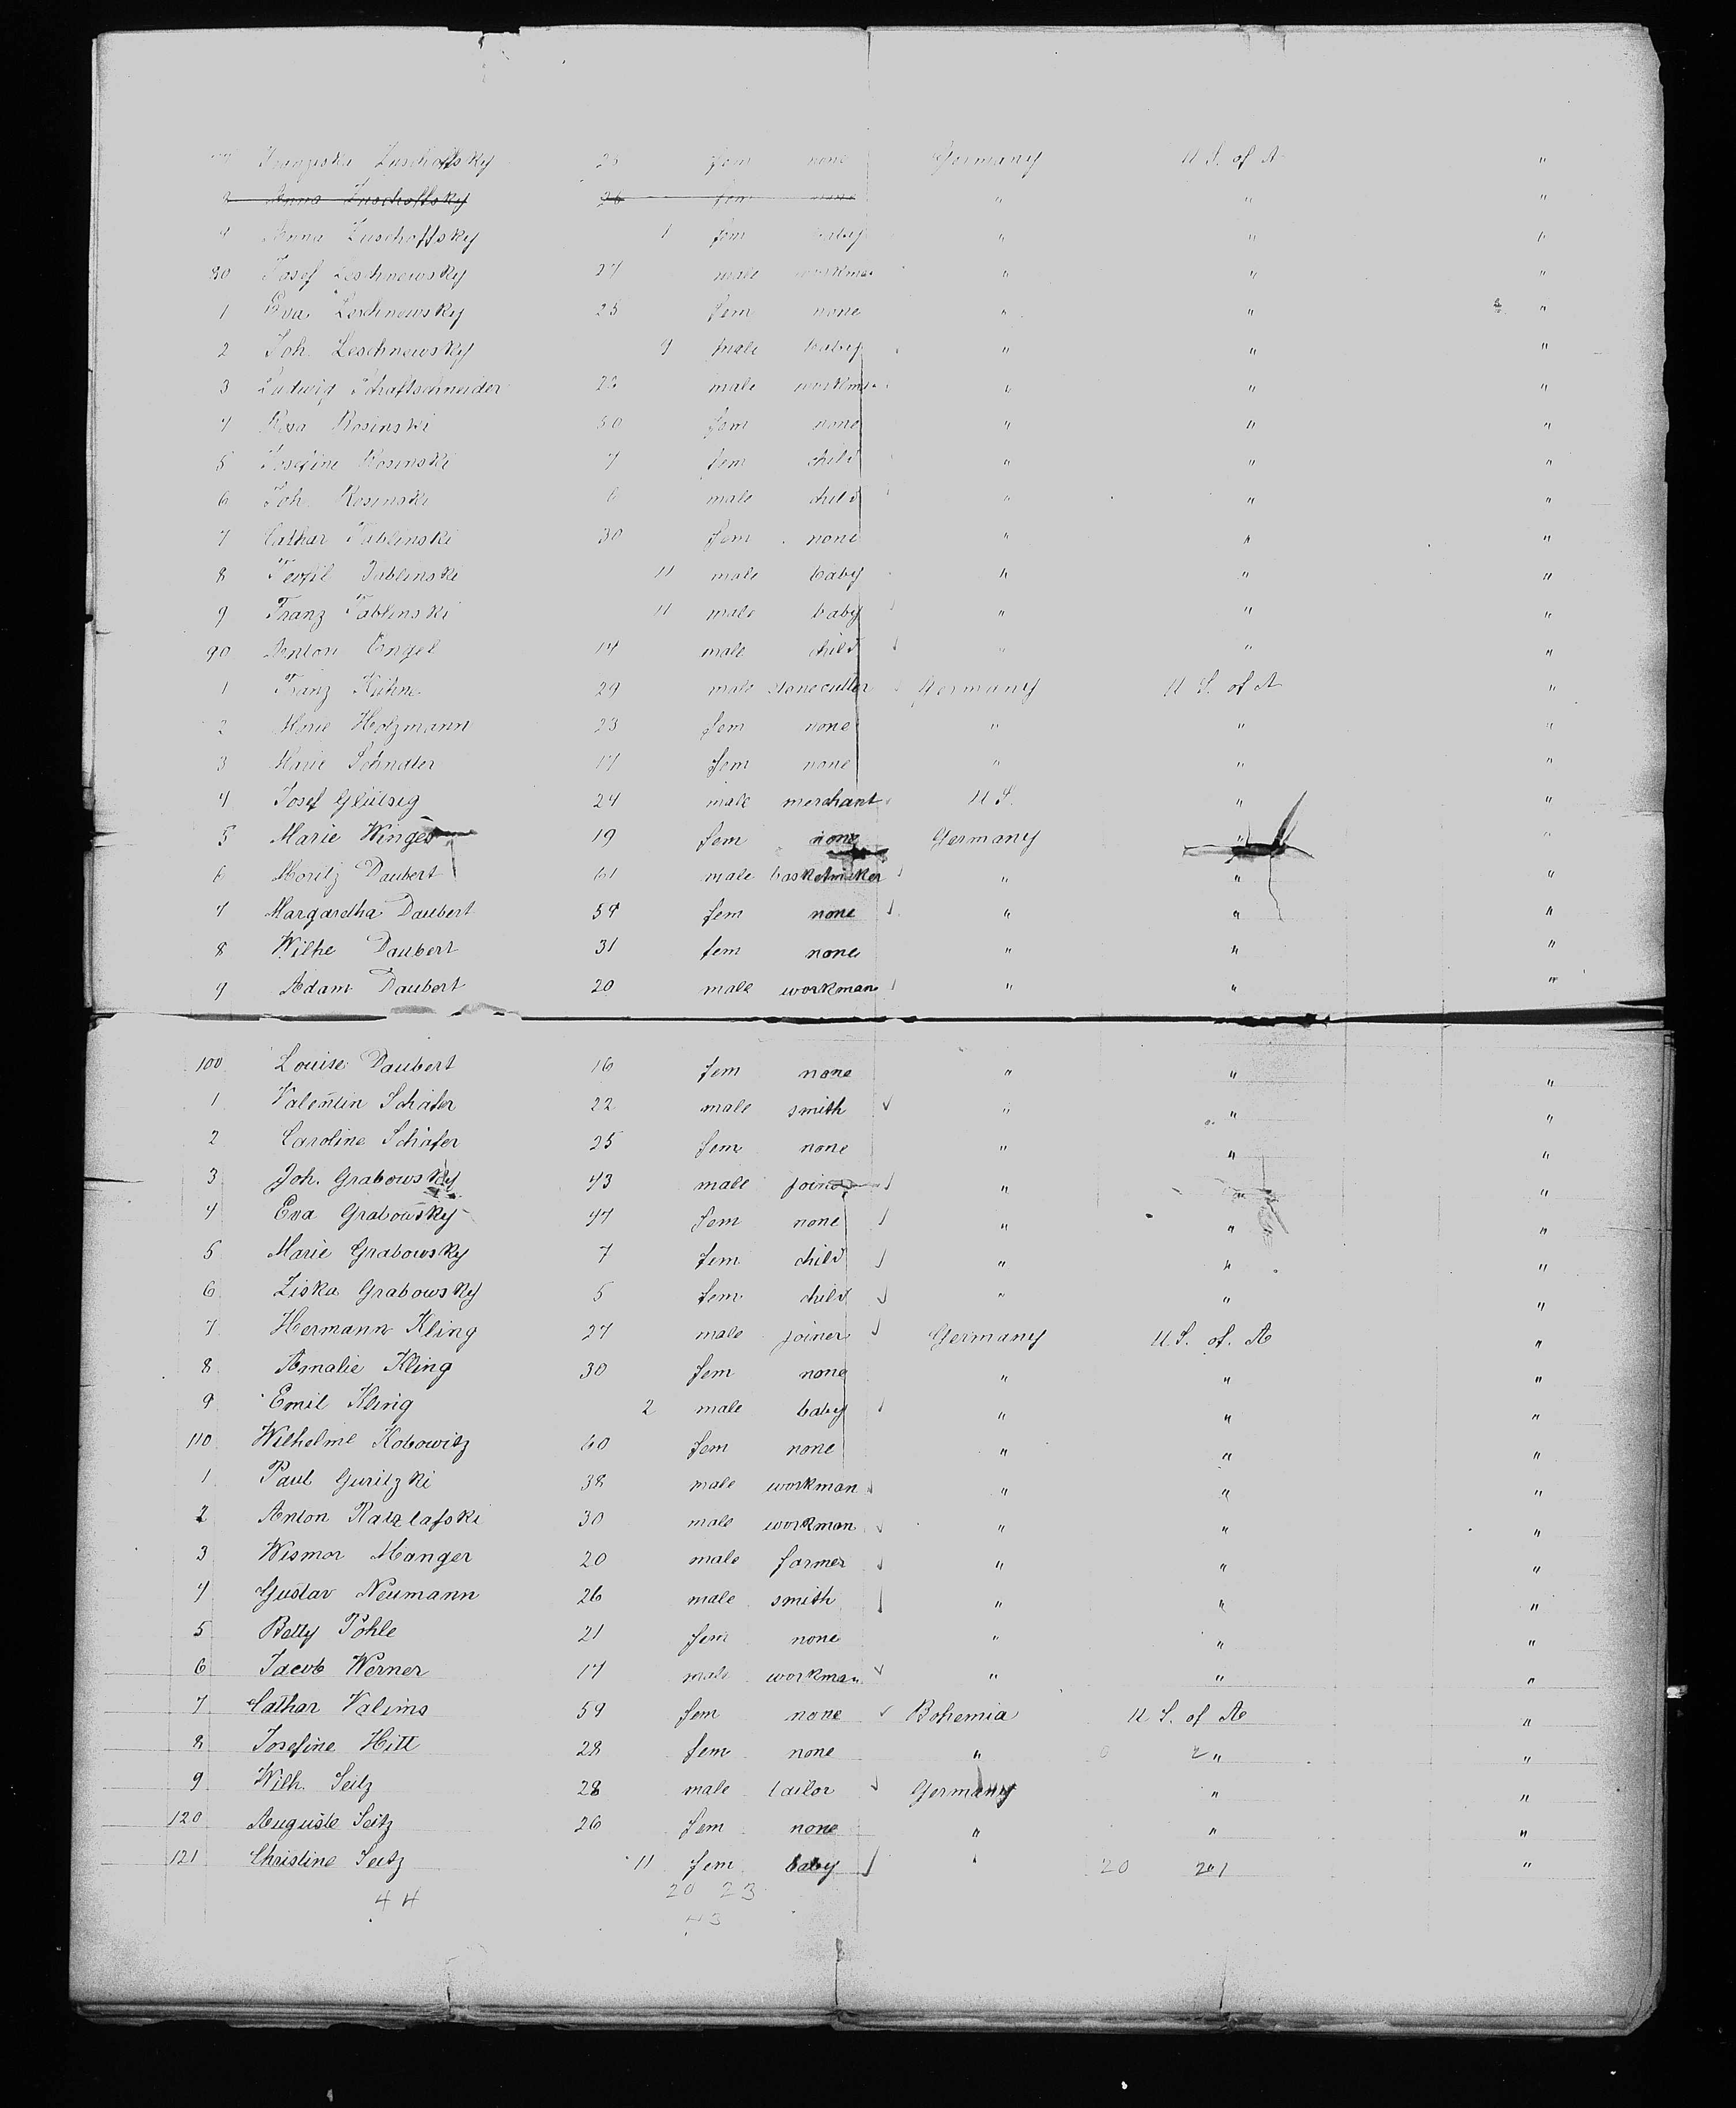 77 Franziska Zuschoffsky 25 fem none Germany U S. of A "
8 Anna Zuschoffsky 26 fem none " " "
9 Anna Zuschoffsky 1 fem baby " " "
80 Josef Leschnewsky 27 male workman " " "
1 Eva Leschnewsky 25 fem none " " "
2 Joh. Leschnewsky 9 male baby " " "
3 Ludwig Schaftschneider male workman " " "
4 Rosa Rosinski 50 fem none " " "
5 Josefine Rosinski 7 fem child " " "
6 Joh. Rosinski 6 male child " " "
7 Cathar Jablinski 30 fem none " " "
8 Jablinski 11 male baby " " "
9 Franz Jablinski 11 male baby " " "
90 Anton Engel 14 male child " " "
1 Franz Kühne 29 male stonecutter Germany U S. of A "
2 Marie Holzmann 23 fem none " " "
3 Marie Schndler 17 fem none " " "
4 Josef Glütsig 24 male merchant U S. " "
5 Marie Winges 19 fem none Germany " "
6 Moritz Daubert 61 male basketmaker " " "
7 Margaretha Daubert 59 fem none " " "
8 Wilhe Daubert 31 fem none " " "
9 Adam Daubert 20 male workman " " "
100 Louise Daubert 16 fem none " " "
1 Valentin Schäfer 22 male smith " " "
2 Caroline Schäfer 25 fem none " " "
3 Joh. Grabowsky 43 male joiner " " "
4 Eva Grabowsky 47 fem none " " "
5 Marie Grabowsky 7 fem child " " "
6 Ziska Grabowsky 5 fem child " " "
7 Hermann Kling 27 male joiner Germany U. S. of. A "
8 Amalie Kling 30 fem none " " "
9 Emil Kling 2 male baby " " "
110 Wilhelme Kobowitz 60 fem none " " "
1 Paul Guritzki 38 male workman " " "
2 Anton Ratzlafski 30 male workman " " "
3 Wismor Manger 20 male farmer " " "
4 Gustav Neumann 26 male smith " " "
5 Betty Pohle 21 fem none " " "
6 Jacob Werner 17 male workman " " "
7 Cathar Valims 59 fem none Bohemia U S. of A "
8 Josefine Hitt 28 fem none " " "
9 Wilh. Seitz 28 male tailor Germany " "
120 Auguste Seitz 26 fem none " " "
121 Christine Seitz 11 fem baby " 20 "
44 20 23
43